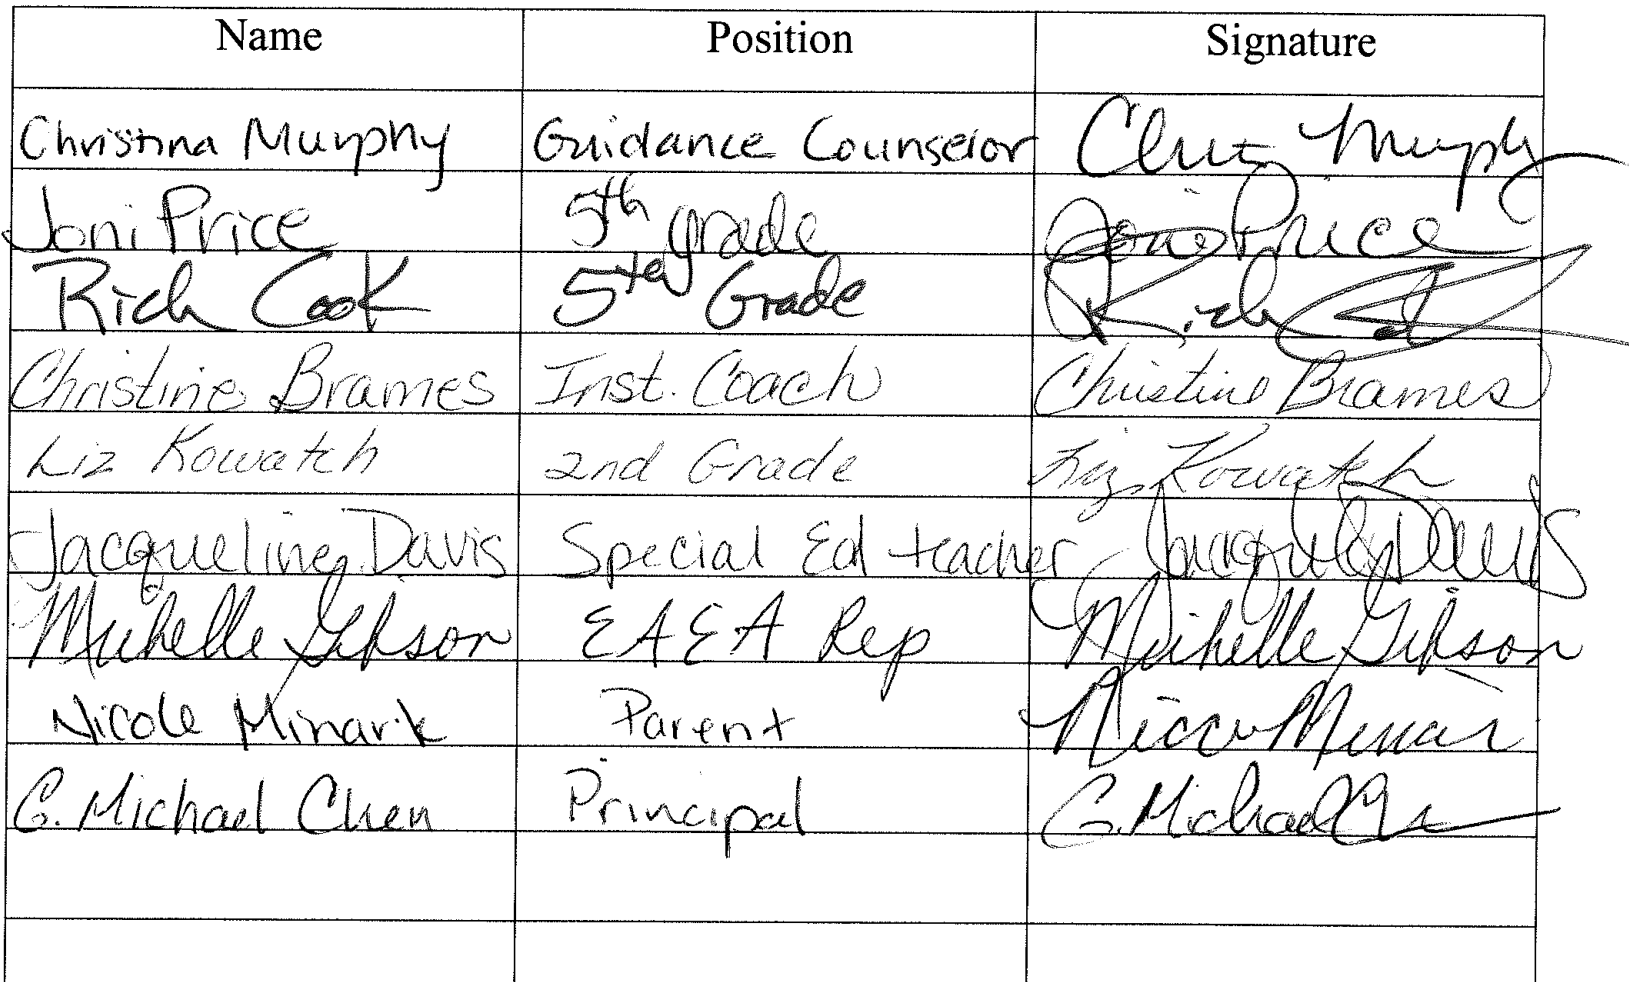 Name Position Signature
Christina Murphy Guidance Counselor Chris Murphy
Joni Price 5th grade Joni Price
Rich Cook 5th Grade Rich Cook
Christine Brames Inst. Coach Christine Brames
Liz Kowatch 2nd Grade Liz Kowatch
Jacqueline Davis Special Ed teacher Jacqueline Davis
Michelle Gibson EAEA Rep Michelle Gibson
Nicole Minarik Parent Nicole
G. Michael Chen Principal G. Michael Chen